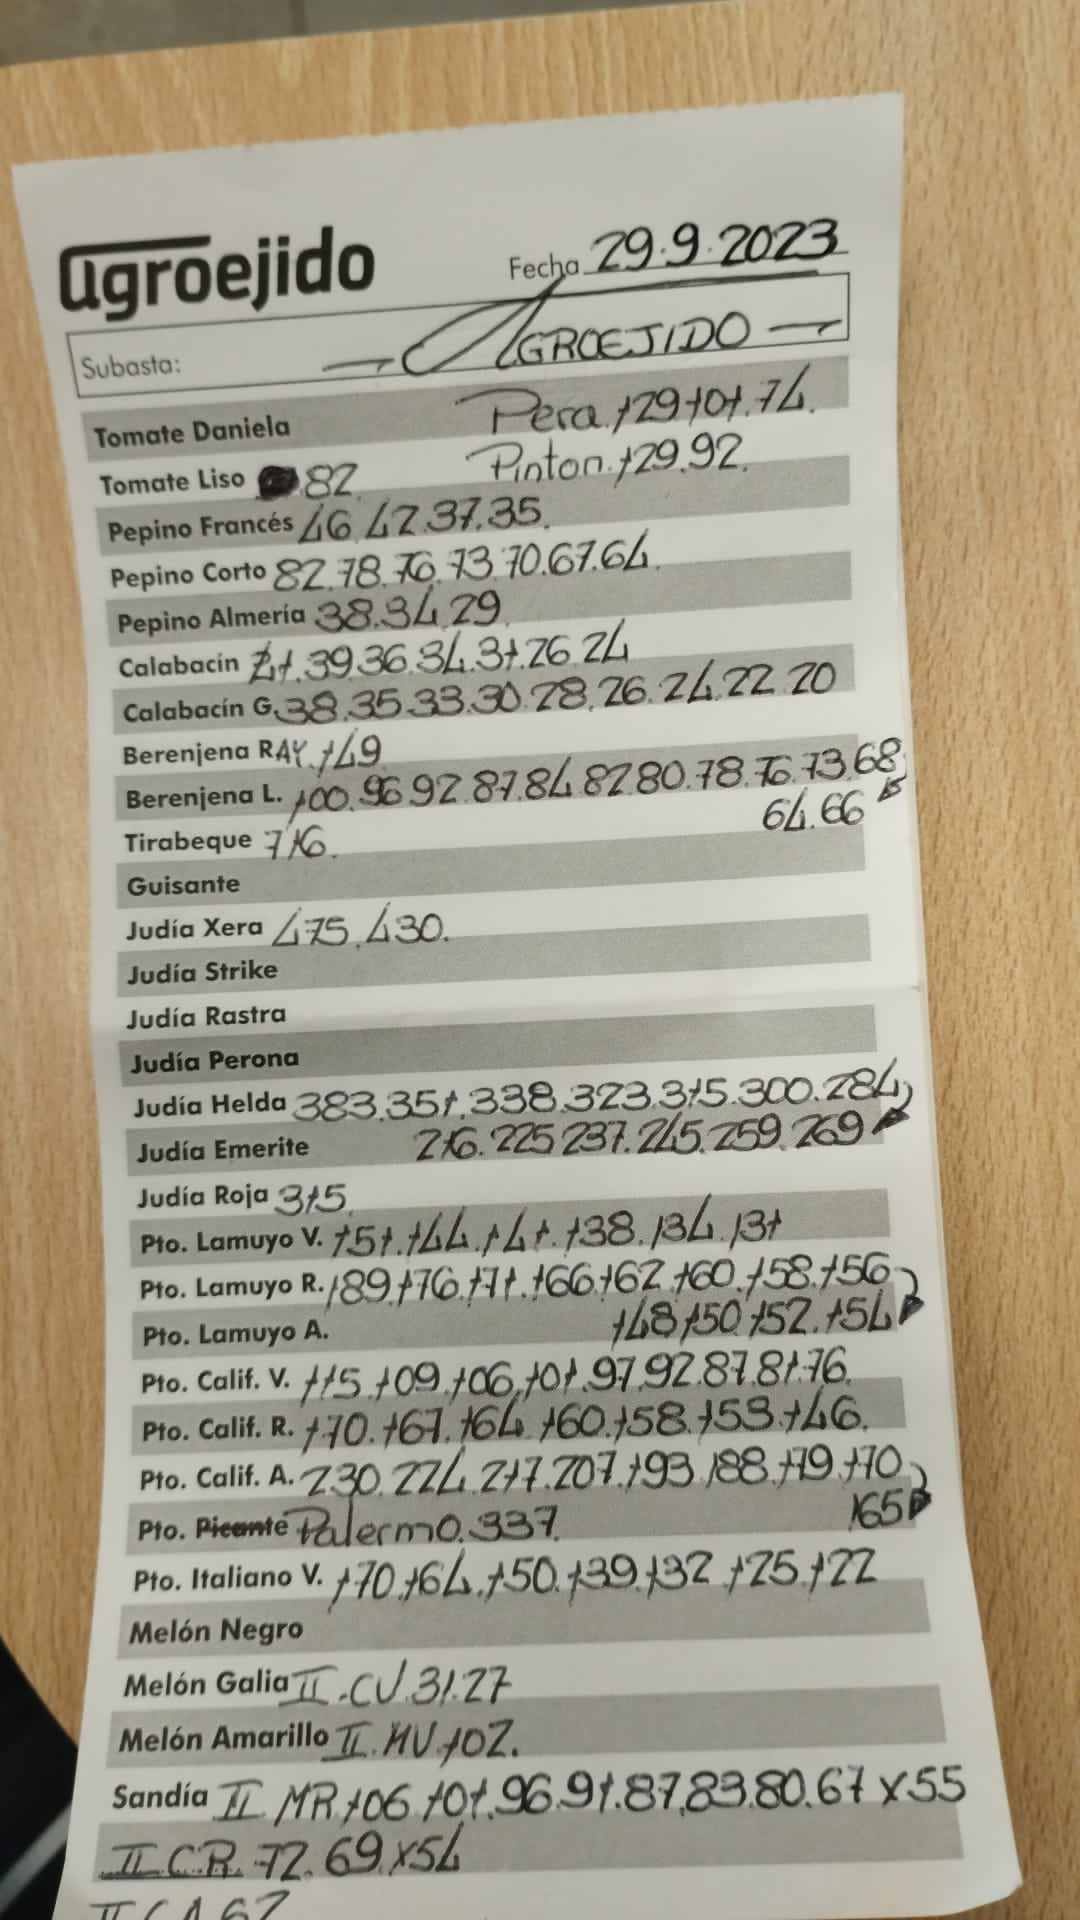 agroejido
Fecha 29.9.2023
Subasta: — AGROEJIDO —
Tomate Daniela Pera.129.101.74.
Tomate Liso 82 Pinton.129.92.
Pepino Francés 46.42.37.35.
Pepino Corto 82.78.76.73.70.67.64.
Pepino Almería 38.34.29
Calabacín 41.39.36.34.31.26.24
Calabacín G. 38.35.33.30.28.26.24.22.20
Berenjena RAY.149
Berenjena L. 100.96.92.87.84.82.80.78.76.73.68
64.66
Tirabeque 716.
Guisante
Judía Xera 475.430.
Judía Strike
Judía Rastra
Judía Perona
Judía Helda 383.351.338.323.315.300.284
Judía Emerite 216.225.237.245.259.269
Judía Roja 315.
Pto. Lamuyo V. 151.144.141.138.134.131
Pto. Lamuyo R. 189.176.171.166.162.160.158.156
Pto. Lamuyo A. 148.150.152.154
Pto. Calif. V. 115.109.106.101.97.92.87.81.76.
Pto. Calif. R. 170.167.164.160.158.153.146.
Pto. Calif. A. 230.224.217.207.193.188.179.170
Pto. Picante Palermo.337. 165
Pto. Italiano V. 170.164.150.139.132.125.122
Melón Negro
Melón Galia II.CV.31.27
Melón Amarillo II.MV.102.
Sandía II MR.106.101.96.91.87.83.80.67x55
II CR.72.69.x54
II CA 62